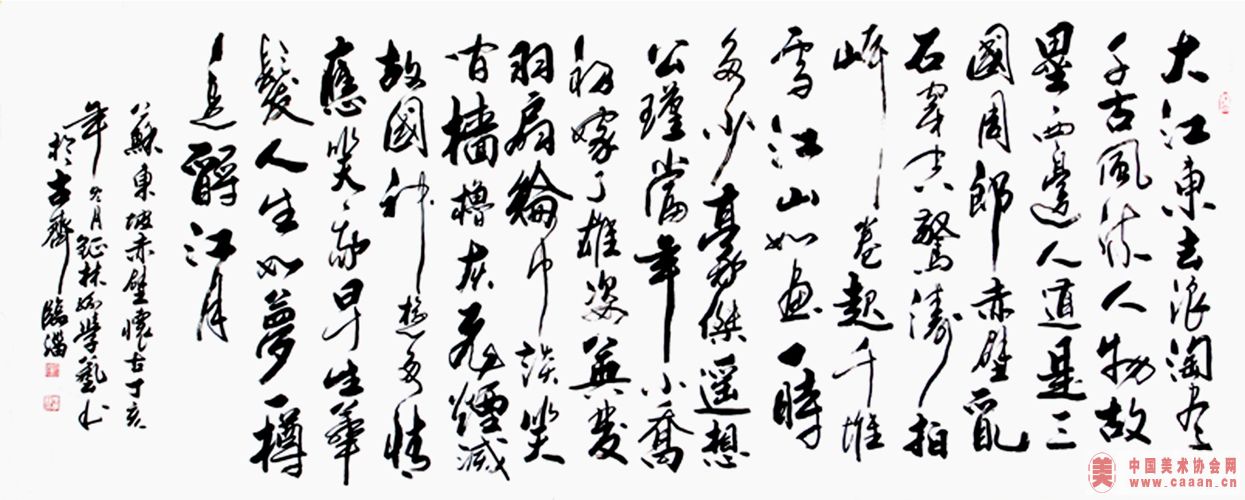 大江東去浪淘盡
千古風流人物故
壘西邊人道是三
國周郎赤壁亂
石穿空驚濤拍
岸卷起千堆
雪江山如畫一時
多少豪傑遥想
公瑾當年小喬
初嫁了雄姿英發
羽扇綸巾談笑
間檣櫓灰飛煙滅
故國神遊多情
應笑我早生華
髮人生如夢一樽
還酹江月
蘇東坡赤壁懷古丁亥
年冬月林學藝
於古齊臨淄
中国美术协会网
www.caaan.cn